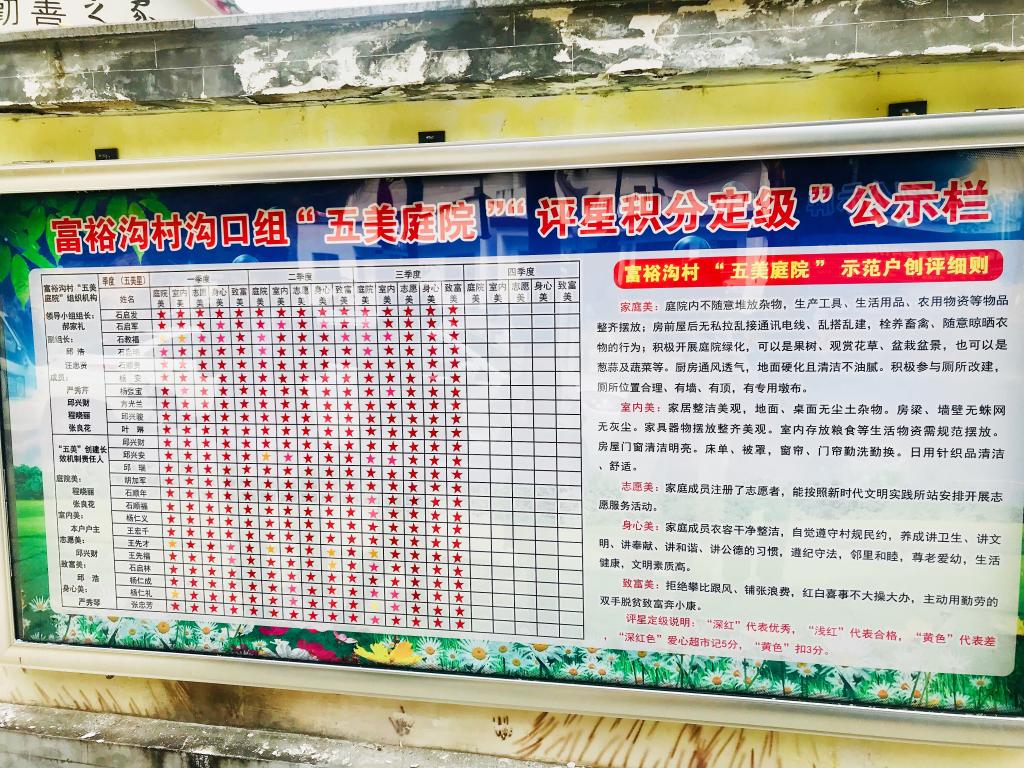 勤善之家
富裕沟村沟口组“五美庭院”“评星积分定级”公示栏
富裕沟村“五美庭院”组织机构
领导小组组长：
郝家礼
副组长：
邱 浩
汪忠贤
成员：
严秀芹
邱兴财
程晓丽
张良花
“五美”创建长效机制责任人
庭院美：
程晓丽
张良花
室内美：
本户户主
志愿美：
邱兴财
致富美：
邱 浩
身心美：
严秀琴
季度（五美星） 一季度 二季度 三季度 四季度
姓名 庭院美 室内美 志愿美 身心美 致富美 庭院美 室内美 志愿美 身心美 致富美 庭院美 室内美 志愿美 身心美 致富美 庭院美 室内美 志愿美 身心美 致富美
石启发
石启军
石教福
石启
石顺贵
杨 安
杨张宝
方光兰
邱兴骏
叶 琳
邱兴财
邱兴安
邱 瑞
胡加军
石顺年
石顺福
杨仁义
王宏千
王先才
王先福
石启林
杨仁成
杨仁礼
张忠芳
富裕沟村 “五美庭院” 示范户创评细则
家庭美：庭院内不随意堆放杂物，生产工具、生活用品、农用物资等物品
整齐摆放；房前屋后无私拉乱接通讯电线、乱搭乱建，栓养畜禽、随意晾晒衣
物的行为；积极开展庭院绿化，可以是果树、观赏花草、盆栽盆景，也可以是
葱蒜及蔬菜等。厨房通风透气，地面硬化且清洁不油腻。积极参与厕所改建，
厕所位置合理、有墙、有顶，有专用墩布。
室内美：家居整洁美观，地面、桌面无尘土杂物。房梁、墙壁无蛛网
无灰尘。家具器物摆放整齐美观。室内存放粮食等生活物资需规范摆放。
房屋门窗清洁明亮。床单、被罩，窗帘、门帘勤洗勤换。日用针织品清洁
、舒适。
志愿美：家庭成员注册了志愿者，能按照新时代文明实践所站安排开展志
愿服务活动。
身心美：家庭成员衣容干净整洁，自觉遵守村规民约，养成讲卫生、讲文
明、讲奉献、讲和谐、讲公德的习惯，遵纪守法，邻里和睦，尊老爱幼，生活
健康，文明素质高。
致富美：拒绝攀比跟风、铺张浪费，红白喜事不大操大办，主动用勤劳的
双手脱贫致富奔小康。
评星定级说明：“深红”代表优秀，“浅红”代表合格，“黄色”代表差
，“深红色”爱心超市记5分，“黄色”扣3分。